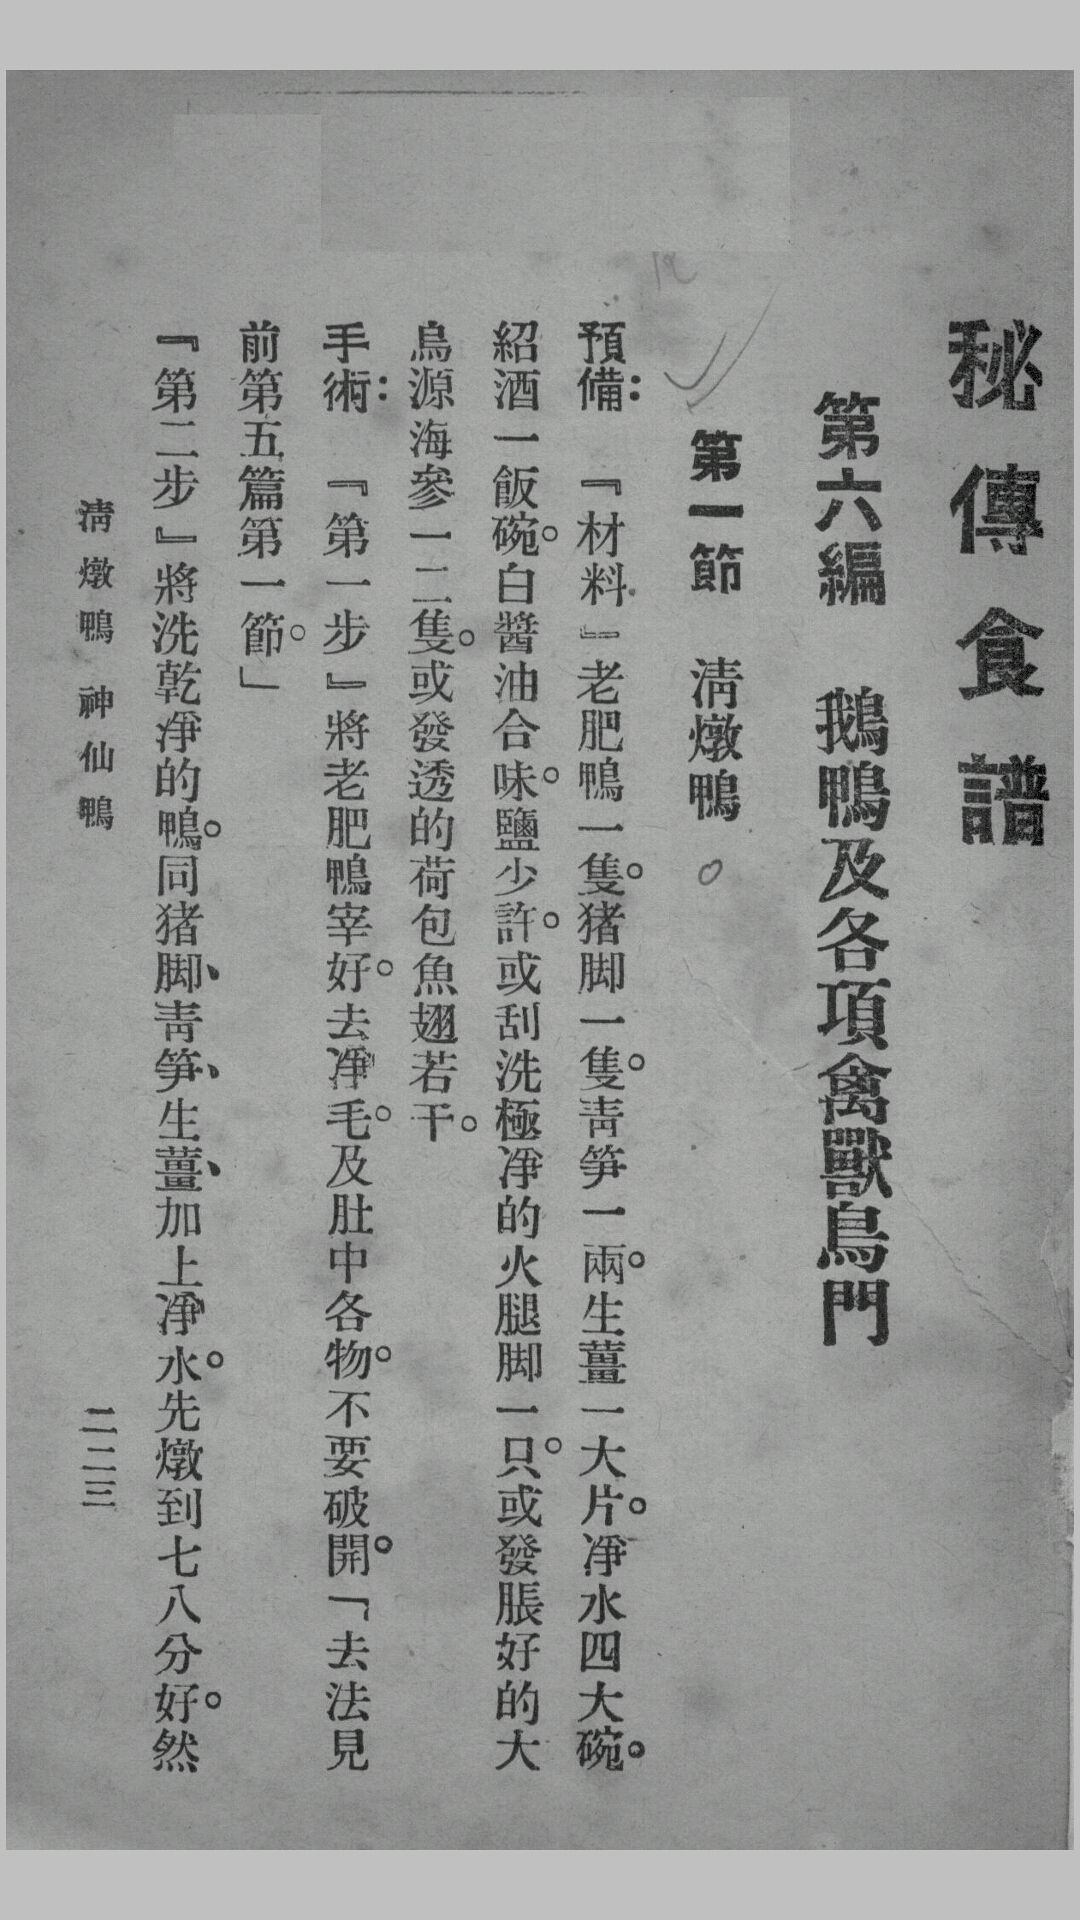 秘傳食譜
第六編　鵝鴨及各項禽獸鳥門
第一節　淸燉鴨
預備：『材料』老肥鴨一隻。猪脚一隻。靑笋一兩。生薑一大片。淨水四大碗。
紹酒一飯碗。白醬油合味。鹽少許。或刮洗極淨的火腿脚一只。或發脹好的大
烏源海參一二隻。或發透的荷包魚翅若干。
手術：『第一步』將老肥鴨宰好。去淨毛。及肚中各物。不要破開。「去法見
前第五篇第一節。」
『第二步』將洗乾淨的鴨。同猪脚、靑笋、生薑、加上淨水。先燉到七八分好。然
淸燉鴨　神仙鴨
二二三